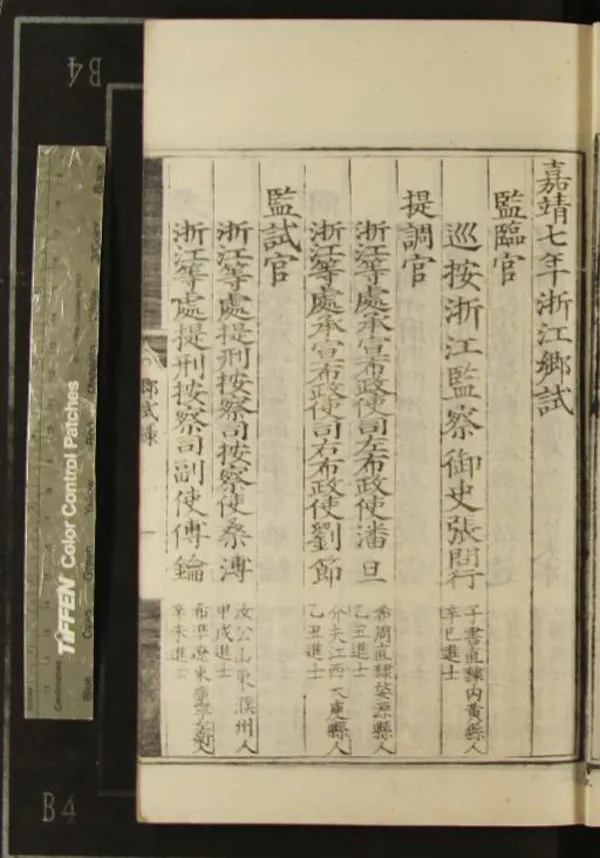 嘉靖七年浙江鄉試
監臨官
巡按浙江監察御史張問行
子書直隸內黃縣人
辛巳進士
提調官
浙江等處承宣布政使司左布政使潘旦
希周直隸婺源縣人
乙丑進士
浙江等處承宣布政使司右布政使劉節
介夫江西大庾縣人
乙丑進士
監試官
浙江等處提刑按察司按察使桑溥
汝公山東濮州人
甲戌進士
浙江等處提刑按察司副使傅鑰
希準遼東廣寧衛人
辛未進士
鄉試錄
一
TIFFEN Color Control Patches
B4
B4